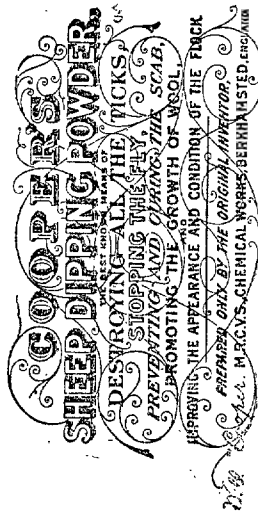 COOPER'S
SHEEP DIPPING POWDER,
THE BEST KNOWN MEANS OF
DESTROYING ALL THE TICKS,
STOPPING THE FLY,
PREVENTING AND CURING THE SCAB,
PROMOTING THE GROWTH OF WOOL,
AND
IMPROVING THE APPEARANCE AND CONDITION OF THE FLOCK
PREPARED ONLY BY THE ORIGINAL INVENTOR,
Wm Cooper M.R.C.V.S., CHEMICAL WORKS, BERKHAMSTED, ENGLAND